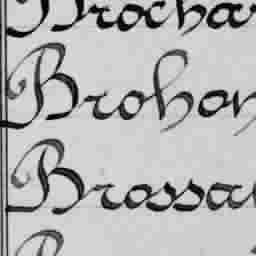 Brochar
Brohon
Brossa